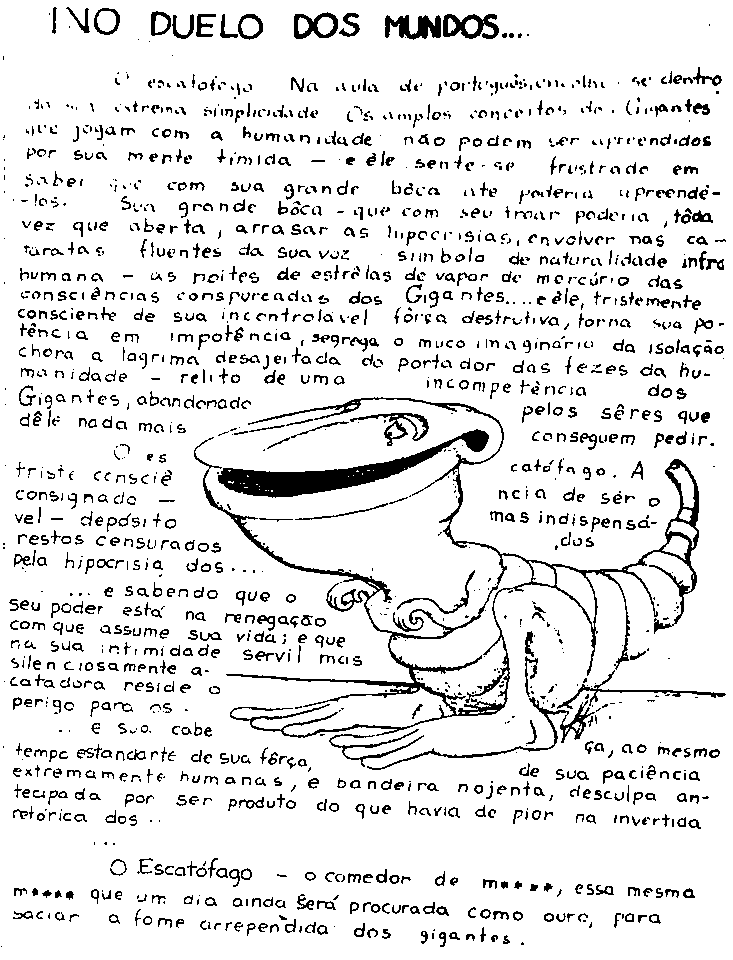 NO DUELO DOS MUNDOS...
O escatófago Na aula de português, encolhe-se dentro
extrema simplicidade Os amplos conceitos dos Gigantes
que jogam com a humanidade não podem ser apreendidos
por sua mente tímida — e êle sente-se frustrado em
saber que com sua grande bôca até poderia apreendê-
-los. Sua grande bôca - que com seu troar poderia, tôda
vez que aberta, arrasar as hipocrisias, envolver nas ca-
taratas fluentes da sua voz simbolo de naturalidade infra
humana — as noites de estrêlas de vapor de mercúrio das
consciências conspurcadas dos Gigantes.... e êle, tristemente
consciente de sua incontrolável fôrça destrutiva, torna sua po-
tência em impotência, segrega o muco imaginário da isolação
chora a lagrima desajeitada do portador das fezes da hu-
manidade — relito de uma incompetência dos
Gigantes, abandonado pelos sêres que
dêle nada mais conseguem pedir.
O es catófago. A
triste consciê ncia de sêr o
consignado — mas indispensá-
vel — depósito dos
restos censurados
pela hipocrisia dos....
... e sabendo que o
seu poder está na renegação
com que assume sua vida; e que
na sua intimidade servil mas
silenciosamente a-
catadora reside o
perigo para os.
.. e sua cabe ça, ao mesmo
tempo estandarte de sua fôrça, de sua paciência
extremamente humanas, e bandeira nojenta, desculpa an-
tecipada por ser produto do que havia de pior na invertida
retórica dos..
...
O Escatófago — o comedor de m****, essa mesma
m**** que um dia ainda será procurada como ouro, para
saciar a fome arrependida dos gigantes.